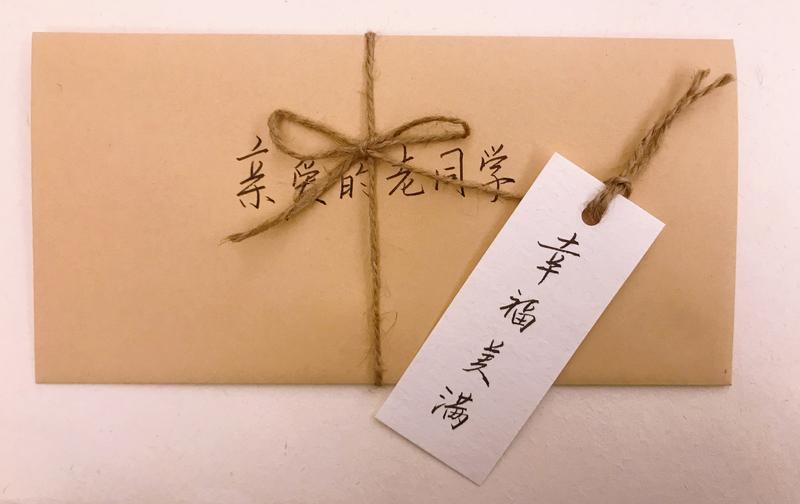 亲爱的老同学
幸福美满